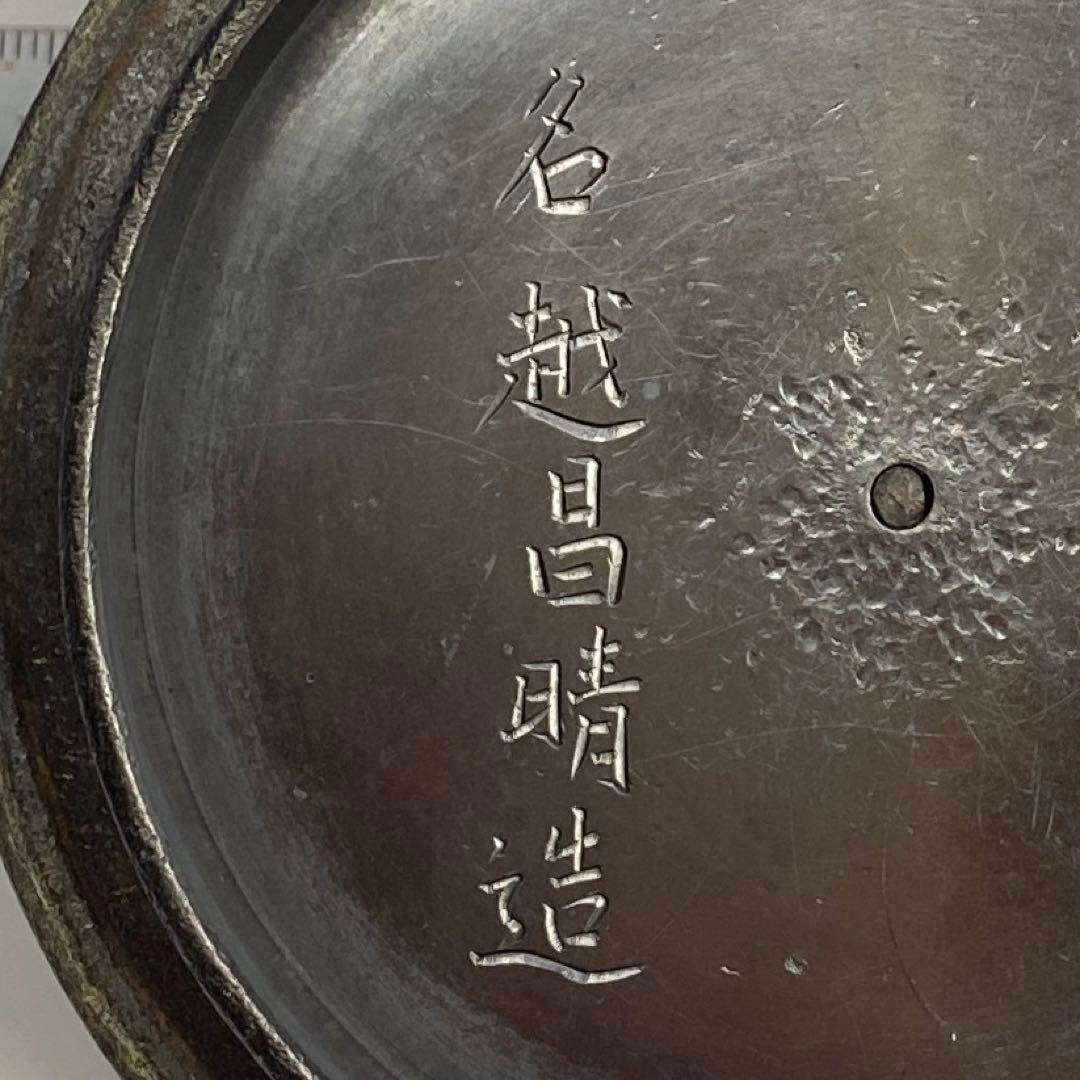 名越昌晴造